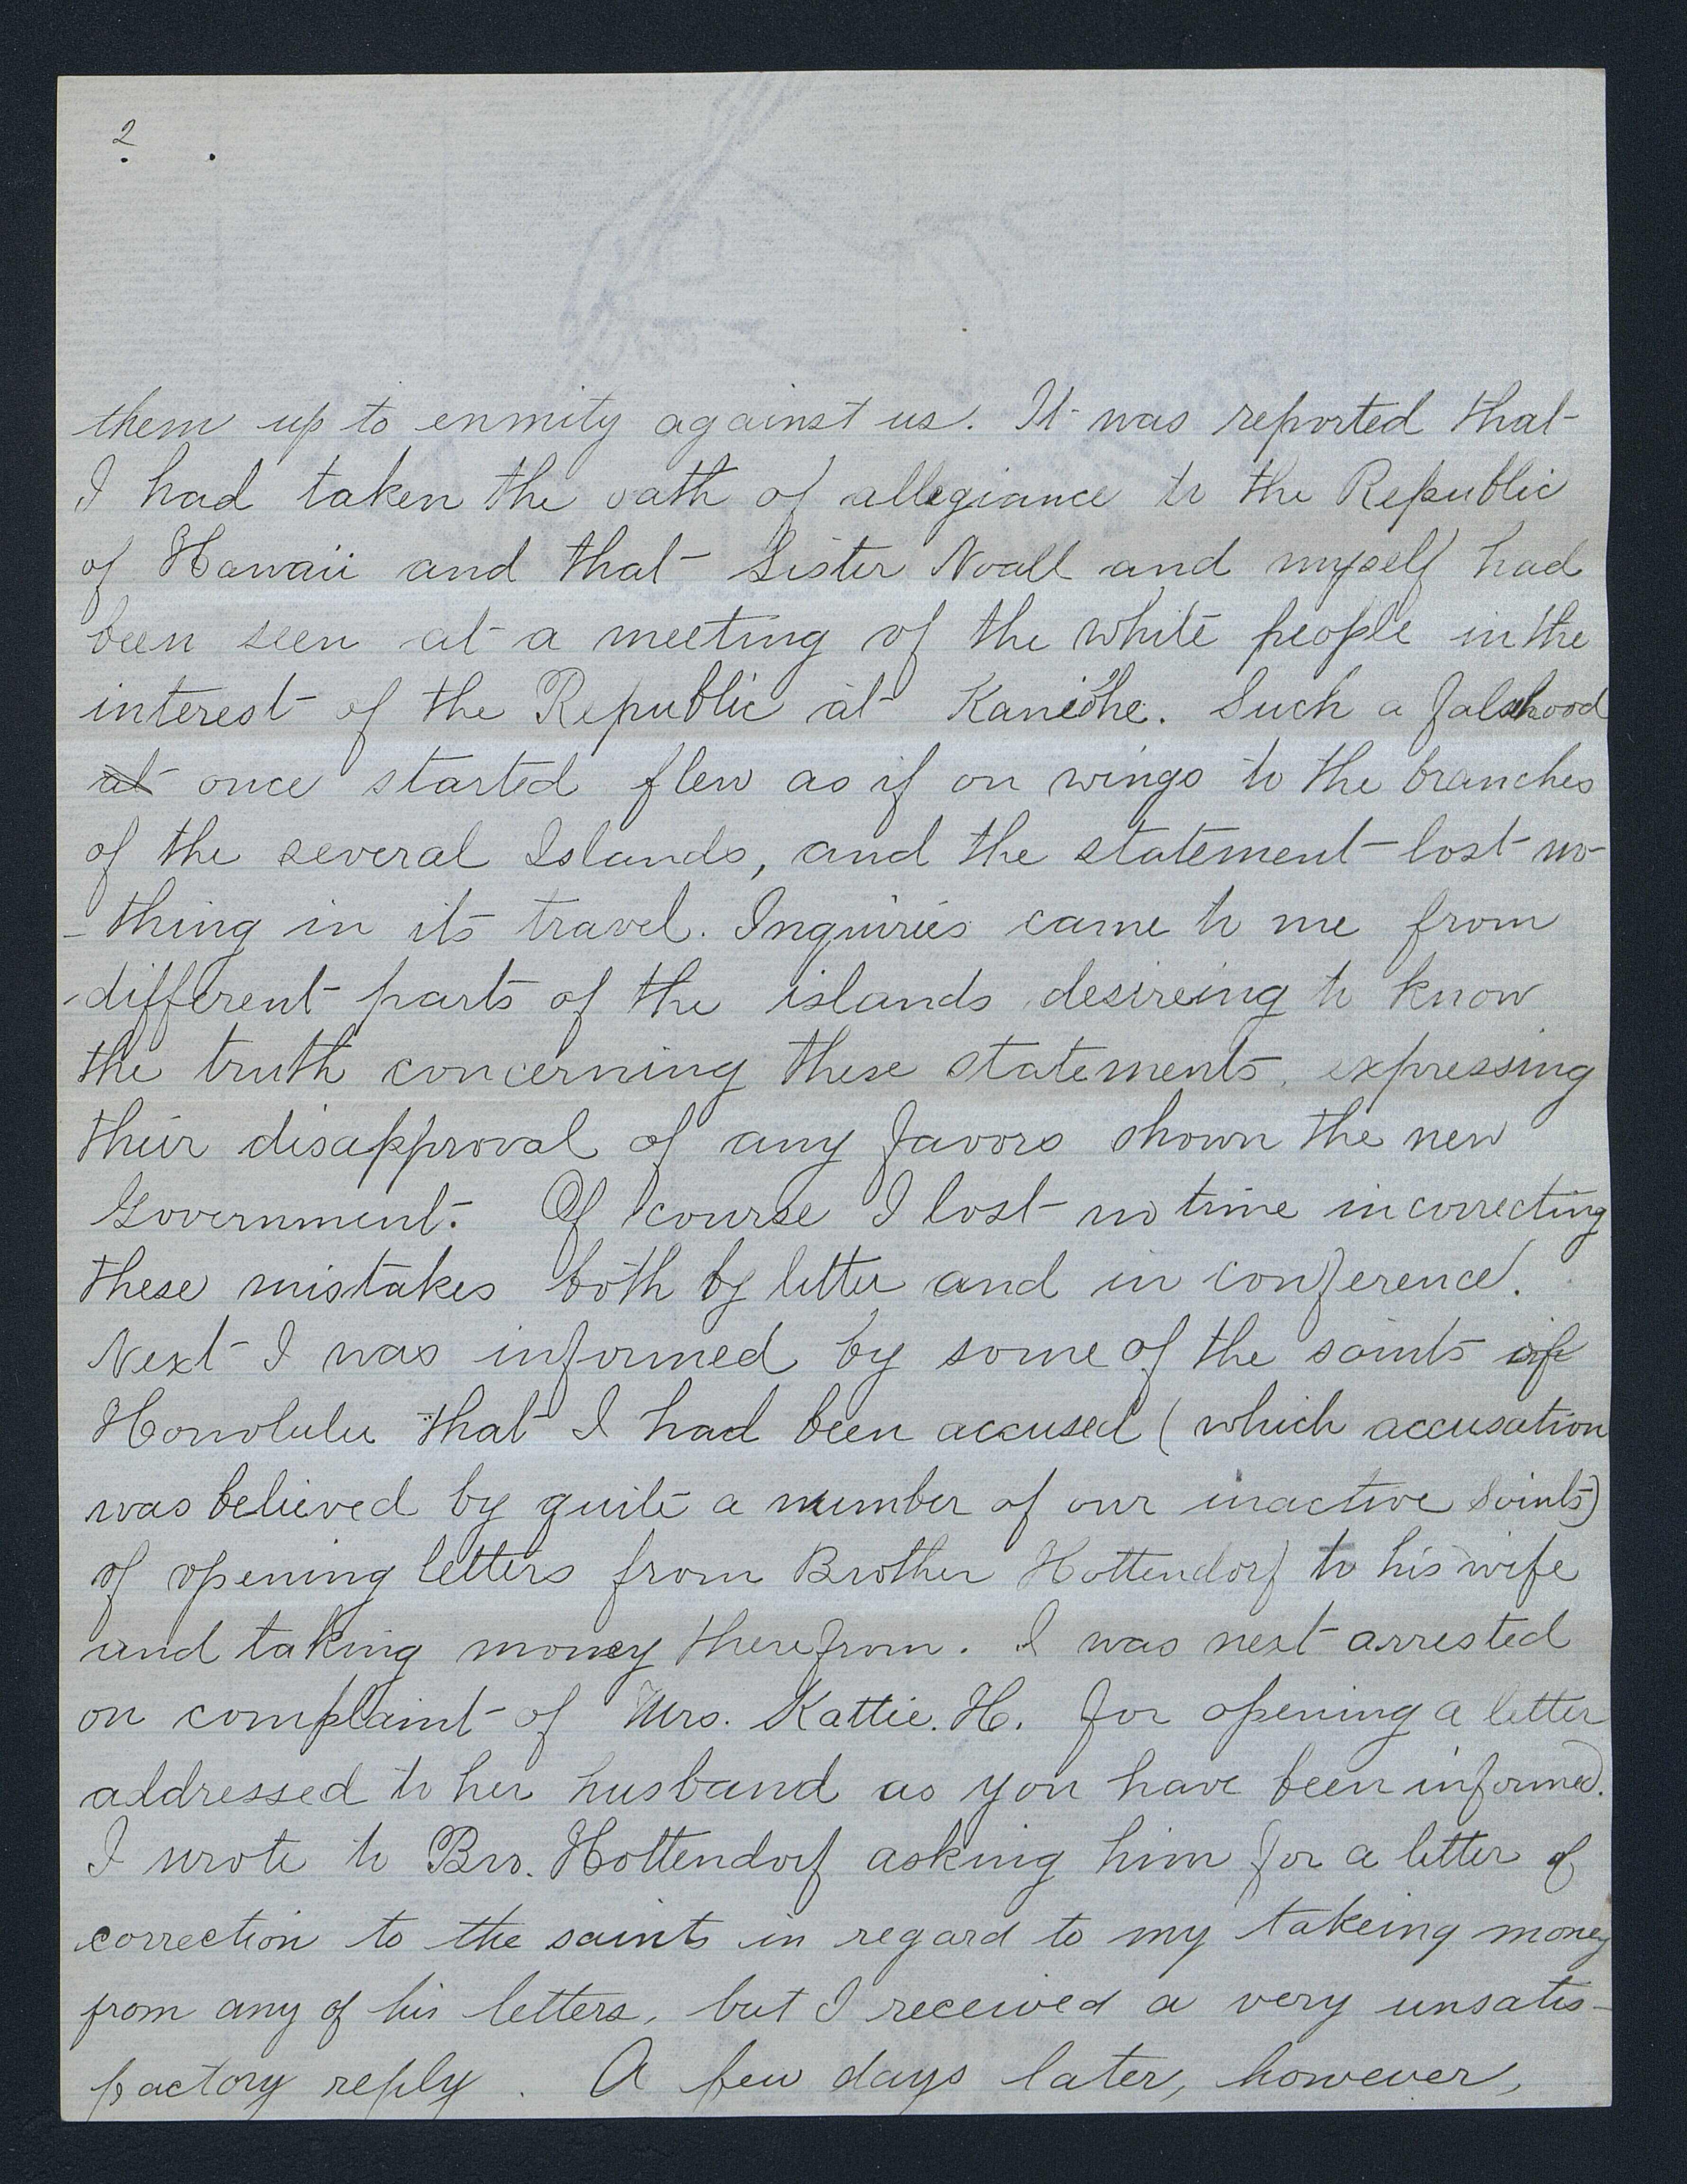 2
them up to enmity against us. It was reported that
I had taken the oath of allegiance to the Republic
of Hawaii and that Sister Noall and myself had
been seen at a meeting of the white people in the
interest of the Republic at Kaneohe. Such a falsehood
at once started flew as if on wings to the branches
of the several Islands, and the statement lost no-
-thing in its travel. Inquiries came to me from
different parts of the islands desireing to know
the truth concerning these statements, expressing
their disapproval of any favors shown the new
Government. Of course I lost no time in correcting
these mistakes both by letter and in conference.
Next I was informed by some of the saints of
Honolulu that I had been accused (which accusation
was believed by quite a number of our inactive Saints)
of opening letters from Brother Hottendorf to his wife
and taking money therefrom. I was next arrested
on complaint of Mrs. Kattie. H. for opening a letter
addressed to her husband as you have been informed.
I wrote to Bro. Hottendorf asking him for a letter of
correction to the saints in regard to my takeing money
from any of his letters, but I received a very unsatis-
factory reply. A few days later, however,